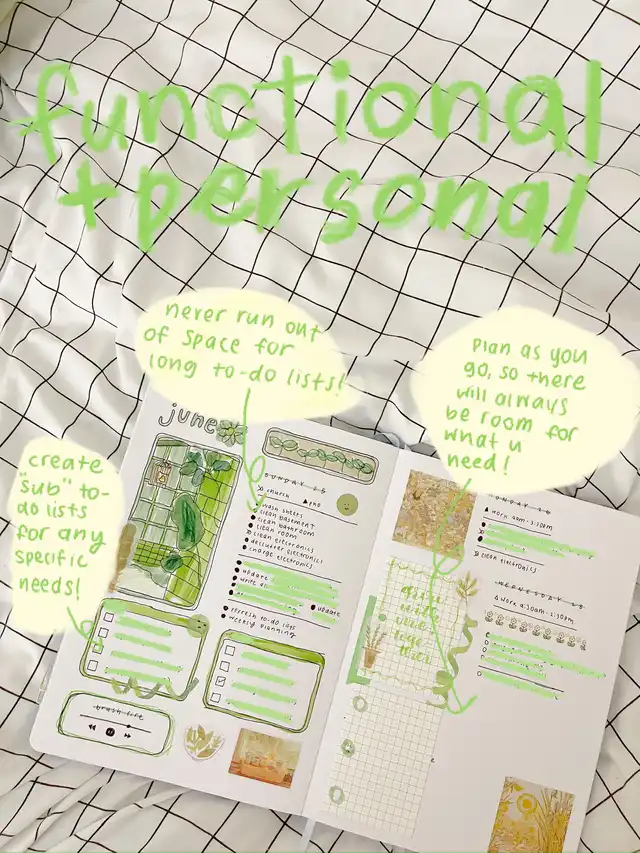 functional
+personal
never run out
of space for
long to-do lists!
Plan as you
go, so there
will always
be room for
what u
need!
create
"sub" to-
do lists
for any
specific
needs!
june
SUNDAY 26
church
wash sheets
clean basement
clean bathroom
clean room
clean electronics
declutter electronics
charge electronics
update
write
update
refresh to-do lists
weekly planning
brush fire
MONDAY 27
work 9am-2:30pm
clean electronics
WEDNESDAY 28
work 9:30am-2:30pm